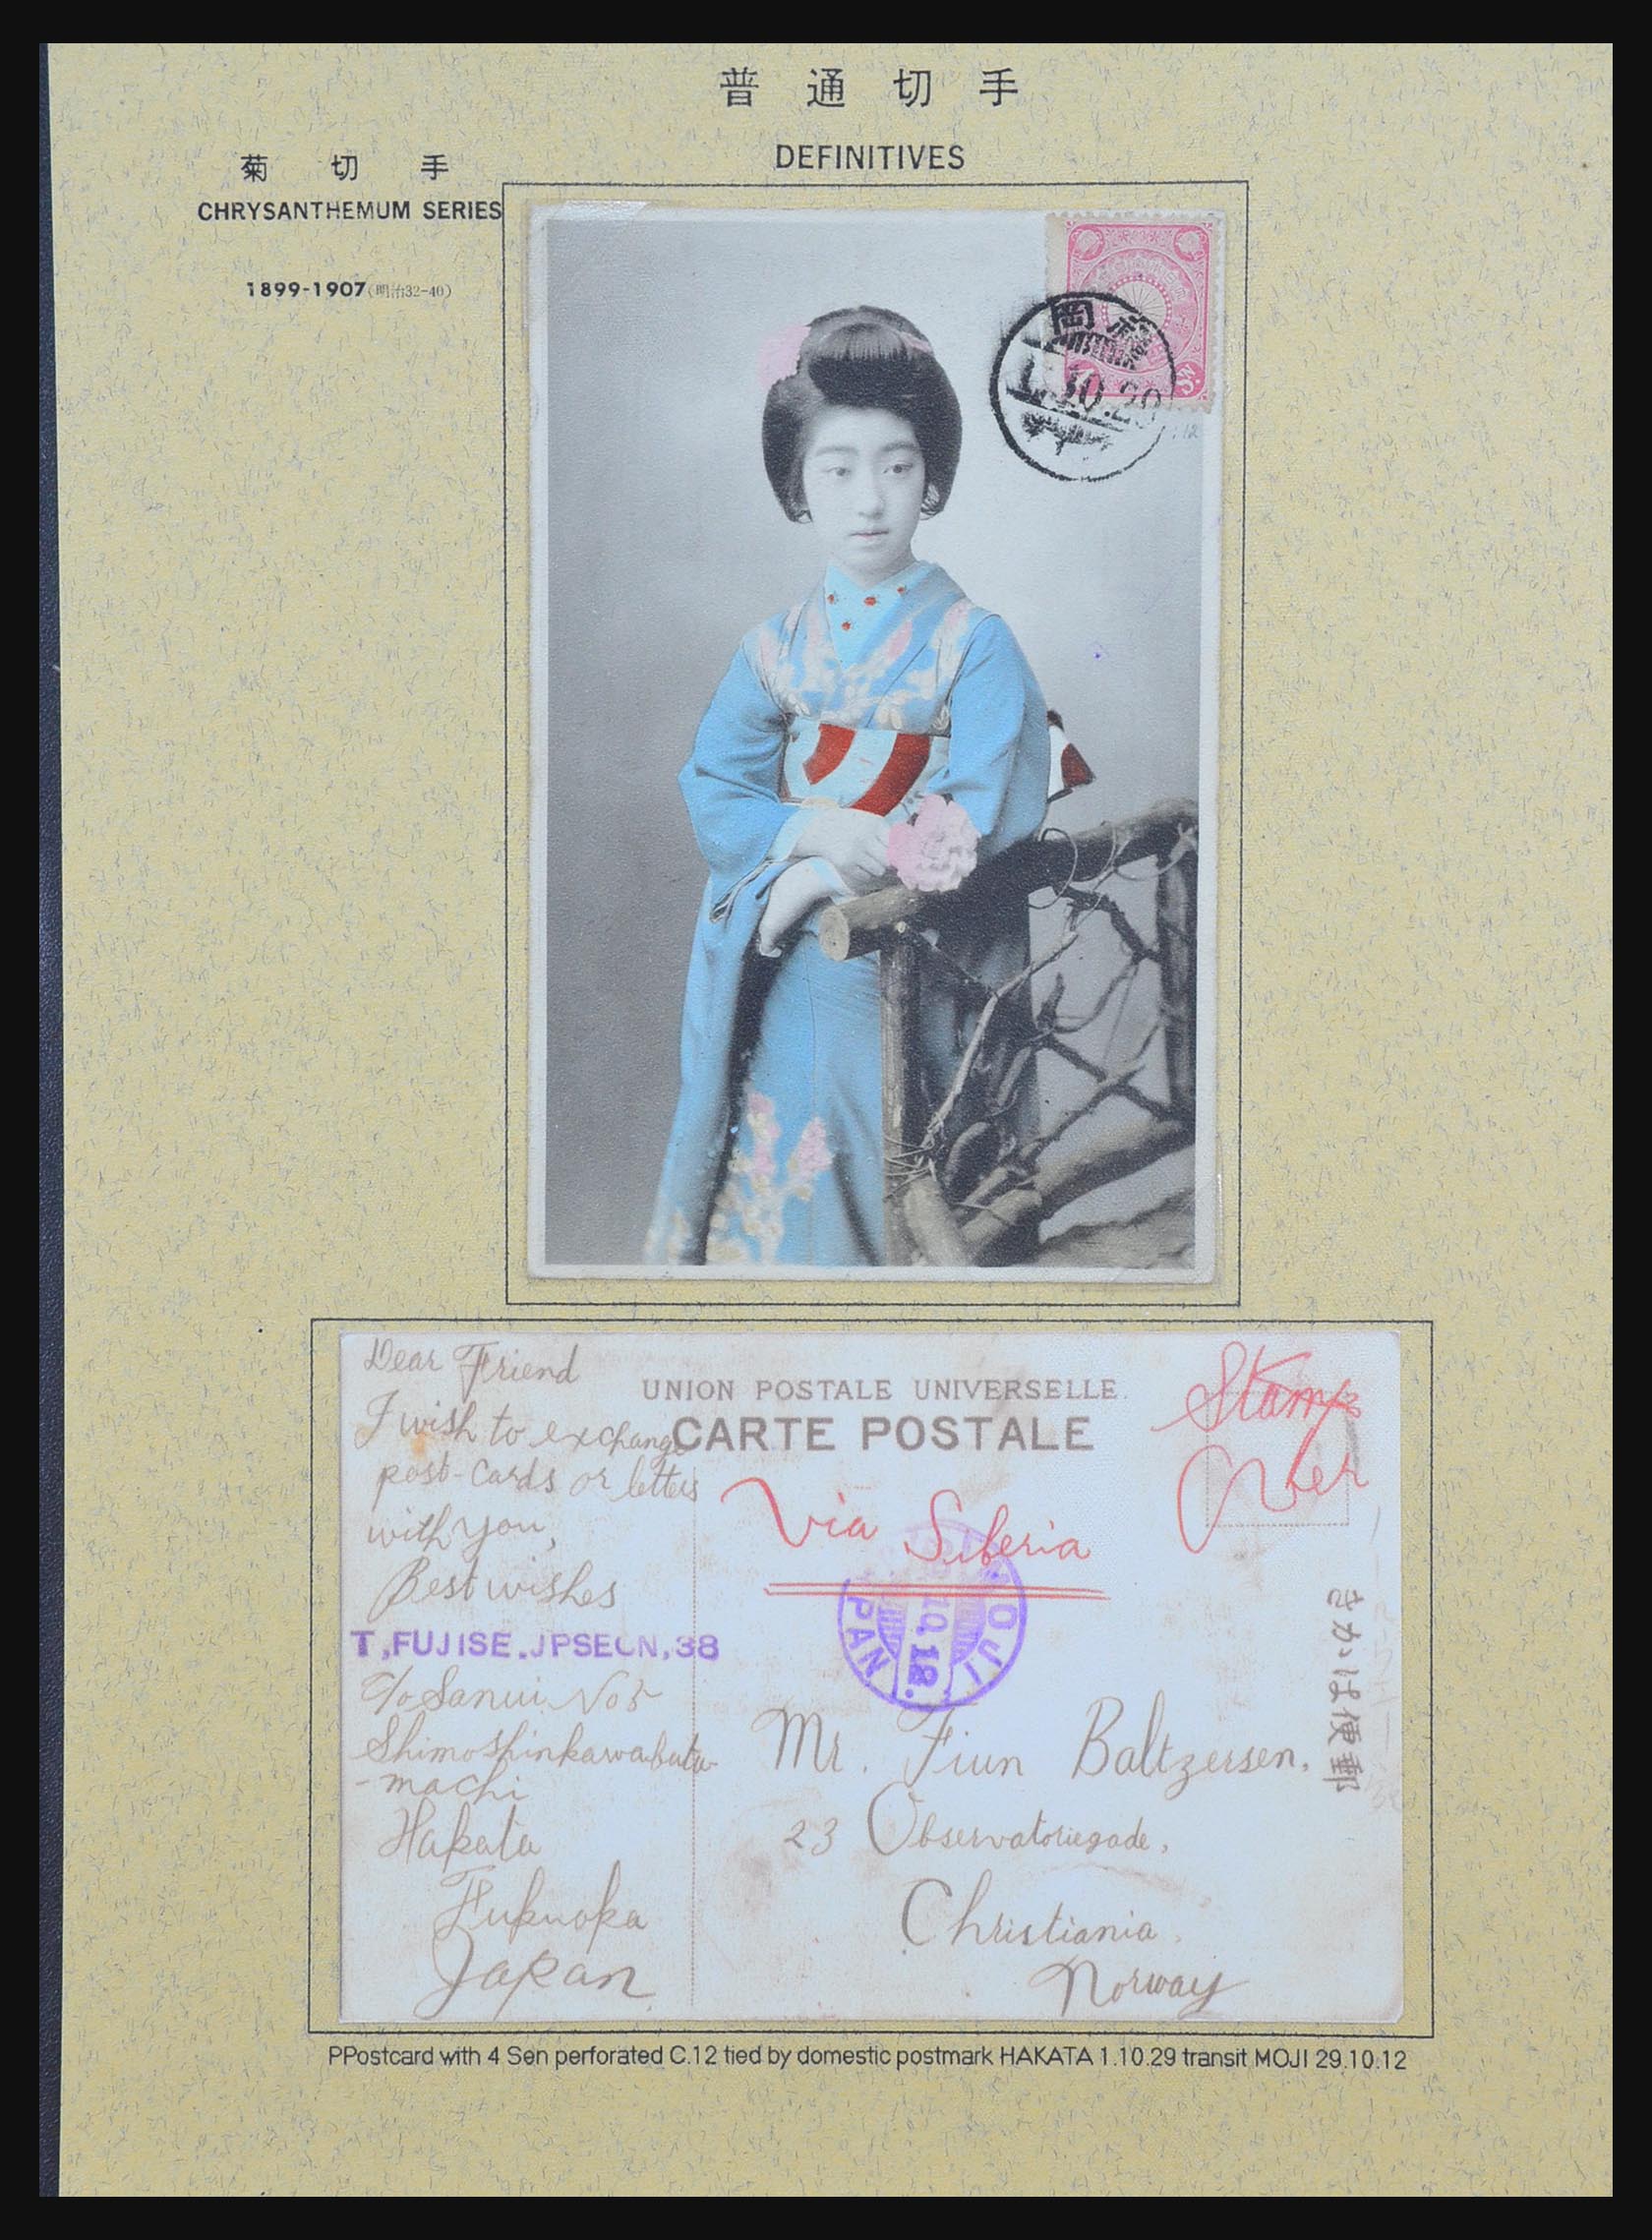 普通切手
DEFINITIVES
菊切手
CHRYSANTHEMUM SERIES
1899-1907(明治32-40)
岡
1.10.29
Dear Friend
I wish to exchange
post-cards or letters
with you,
Best wishes
T,FUJISE.JPSECN,38
c/o Sanui No 5
Shimoshinkawabata-
-machi
Hakata
Fukuoka
Japan
UNION POSTALE UNIVERSELLE.
CARTE POSTALE
Stamp
Over
Via Siberia
MOJI
10.12
JAPAN
きかは便郵
Mr. Fiun Baltzersen.
23 Observatoriegade,
Christiania.
Norway
PPostcard with 4 Sen perforated C.12 tied by domestic postmark HAKATA 1.10.29 transit MOJI 29.10.12